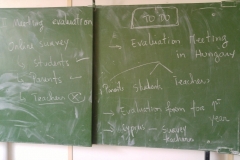 evaluation
Online survey
Students
Parents
Teachers
TO DO
→ Evaluation Meeting
in Hungary
Students Teachers
→ Evaluation form for
year
→ Cyprus survey
teachers